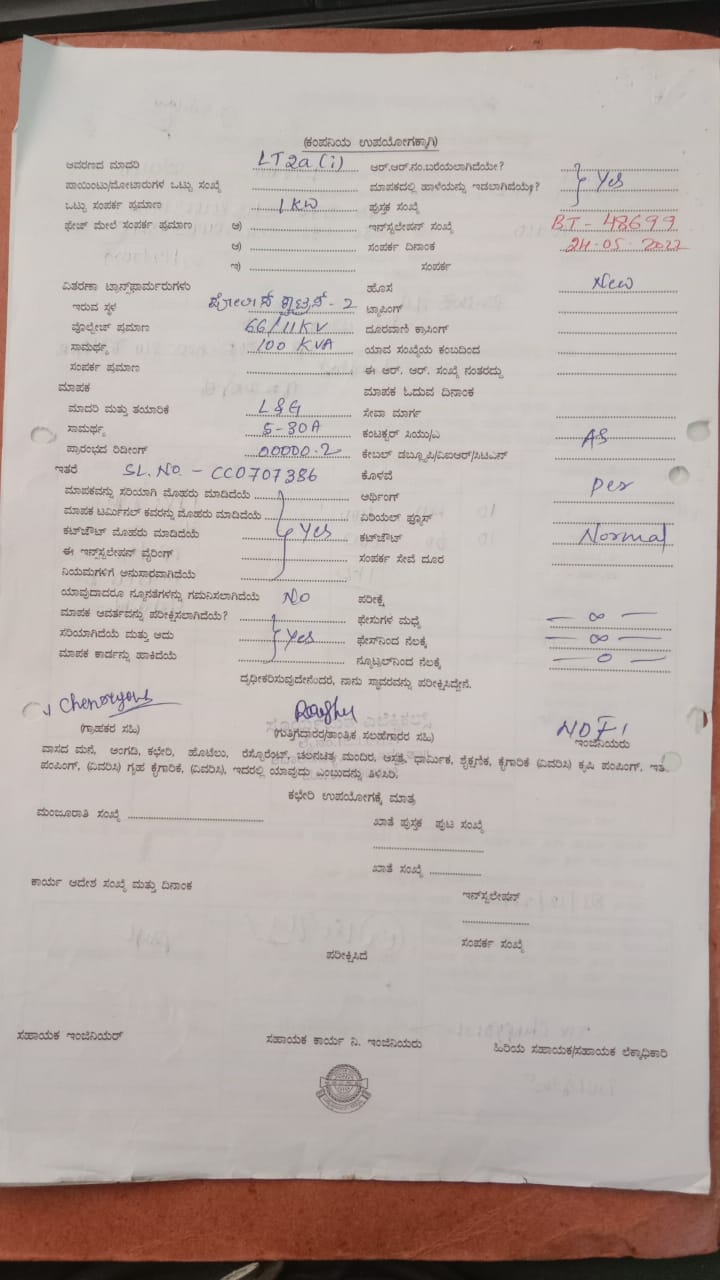 (ಕಂಪನಿಯ ಉಪಯೋಗಕ್ಕಾಗಿ)
ಆವರಣದ ಮಾದರಿ LT2a(i) ಆರ್.ಆರ್.ನಂ.ಬರೆಯಲಾಗಿದೆಯೇ?
ಪಾಯಿಂಟು/ಮೋಟಾರುಗಳ ಒಟ್ಟು ಸಂಖ್ಯೆ ಮಾಪಕದಲ್ಲಿ ಹಾಳೆಯನ್ನು ಇಡಲಾಗಿದೆಯೆ? Yes
ಒಟ್ಟು ಸಂಪರ್ಕ ಪ್ರಮಾಣ 1KW ಪುಸ್ತಕ ಸಂಖ್ಯೆ
ಫೇಜ್ ಮೇಲೆ ಸಂಪರ್ಕ ಪ್ರಮಾಣ ಅ) ಇನ್‌ಸ್ಟಲೇಷನ್ ಸಂಖ್ಯೆ BT-48699
ಆ) ಸಂಪರ್ಕ ದಿನಾಂಕ 24.05.2022
ಇ) ಸಂಪರ್ಕ
ವಿತರಣಾ ಟ್ರಾನ್ಸ್‌ಫಾರ್ಮರುಗಳು ಹೊಸ New
ಇರುವ ಸ್ಥಳ - 2 ಟ್ಯಾಪಿಂಗ್
ವೊಲ್ಟೇಜ್ ಪ್ರಮಾಣ 66/11KV ದೂರವಾಣಿ ಕ್ರಾಸಿಂಗ್
ಸಾಮರ್ಥ್ಯ 100 KVA ಯಾವ ಸಂಖ್ಯೆಯ ಕಂಬದಿಂದ
ಸಂಪರ್ಕ ಪ್ರಮಾಣ ಈ ಆರ್. ಆರ್. ಸಂಖ್ಯೆ ನಂತರದ್ದು
ಮಾಪಕ ಮಾಪಕ ಓದುವ ದಿನಾಂಕ
ಮಾದರಿ ಮತ್ತು ತಯಾರಿಕೆ L&G ಸೇವಾ ಮಾರ್ಗ
ಸಾಮರ್ಥ್ಯ 5-30A ಕಂಟಕ್ಟರ್ ಸಿಯು/ಎ AS
ಪ್ರಾರಂಭದ ರಿಡೀಂಗ್ 00000.2 ಕೇಬಲ್ ಡಬ್ಲ್ಯೂಪಿ/ವಿಐಆರ್/ಸಿಟಿಎಸ್
ಇತರೆ SL.NO - CC0707386 ಕೊಳವೆ
ಮಾಪಕವನ್ನು ಸರಿಯಾಗಿ ಮೊಹರು ಮಾಡಿದೆಯೆ ಅರ್ಥಿಂಗ್ per
ಮಾಪಕ ಟರ್ಮಿನಲ್ ಕವರನ್ನು ಮೊಹರು ಮಾಡಿದೆಯೆ ಏರಿಯಲ್ ಫ್ಯೂಸ್
ಕಟ್‌ಔಟ್ ಮೊಹರು ಮಾಡಿದೆಯೆ Yes ಕಟ್‌ಔಟ್ Normal
ಈ ಇನ್‌ಸ್ಟಲೇಷನ್ ವೈರಿಂಗ್ ಸಂಪರ್ಕ ಸೇವೆ ದೂರ
ನಿಯಮಗಳಿಗೆ ಅನುಸಾರವಾಗಿದೆಯೆ
ಯಾವುದಾದರೂ ನ್ಯೂನತೆಗಳನ್ನು ಗಮನಿಸಲಾಗಿದೆಯೆ No ಪರೀಕ್ಷೆ
ಮಾಪಕ ಆವರ್ತವನ್ನು ಪರೀಕ್ಷಿಸಲಾಗಿದೆಯೆ? ಫೇಸುಗಳ ಮಧ್ಯೆ — ∞ —
ಸರಿಯಾಗಿದೆಯೆ ಮತ್ತು ಅದು Yes ಫೇಸ್‌ನಿಂದ ನೆಲಕ್ಕೆ — ∞ —
ಮಾಪಕ ಕಾರ್ಡನ್ನು ಹಾಕಿದೆಯೆ ನ್ಯೂಟ್ರಲ್‌ನಿಂದ ನೆಲಕ್ಕೆ — 0 —
ದೃಢೀಕರಿಸುವುದೇನೆಂದರೆ, ನಾನು ಸ್ಥಾವರವನ್ನು ಪರೀಕ್ಷಿಸಿದ್ದೇನೆ.
(ಗ್ರಾಹಕರ ಸಹಿ) (ಗುತ್ತಿಗೆದಾರರ/ತಾಂತ್ರಿಕ ಸಲಹೆಗಾರರ ಸಹಿ) ಇಂಜಿನಿಯರು
ವಾಸದ ಮನೆ, ಅಂಗಡಿ, ಕಛೇರಿ, ಹೊಟೆಲು, ರೆಸ್ಟೋರೆಂಟ್, ಚಲನಚಿತ್ರ ಮಂದಿರ, ಆಸ್ಪತ್ರೆ, ಧಾರ್ಮಿಕ, ಶೈಕ್ಷಣಿಕ, ಕೈಗಾರಿಕೆ (ವಿವರಿಸಿ) ಕೃಷಿ ಪಂಪಿಂಗ್, ಇತರೆ
ಪಂಪಿಂಗ್, (ವಿವರಿಸಿ) ಗೃಹ ಕೈಗಾರಿಕೆ, (ವಿವರಿಸಿ), ಇದರಲ್ಲಿ ಯಾವುದು ಎಂಬುದನ್ನು ತಿಳಿಸಿರಿ.
ಕಛೇರಿ ಉಪಯೋಗಕ್ಕೆ ಮಾತ್ರ
ಮಂಜೂರಾತಿ ಸಂಖ್ಯೆ ಖಾತೆ ಪುಸ್ತಕ ಪುಟ ಸಂಖ್ಯೆ
ಖಾತೆ ಸಂಖ್ಯೆ
ಕಾರ್ಯ ಆದೇಶ ಸಂಖ್ಯೆ ಮತ್ತು ದಿನಾಂಕ
ಇನ್‌ಸ್ಟಲೇಷನ್
ಸಂಪರ್ಕ ಸಂಖ್ಯೆ
ಪರೀಕ್ಷಿಸಿದೆ
ಸಹಾಯಕ ಇಂಜಿನಿಯರ್ ಸಹಾಯಕ ಕಾರ್ಯ ನಿ. ಇಂಜಿನಿಯರು ಹಿರಿಯ ಸಹಾಯಕ/ಸಹಾಯಕ ಲೆಕ್ಕಾಧಿಕಾರಿ